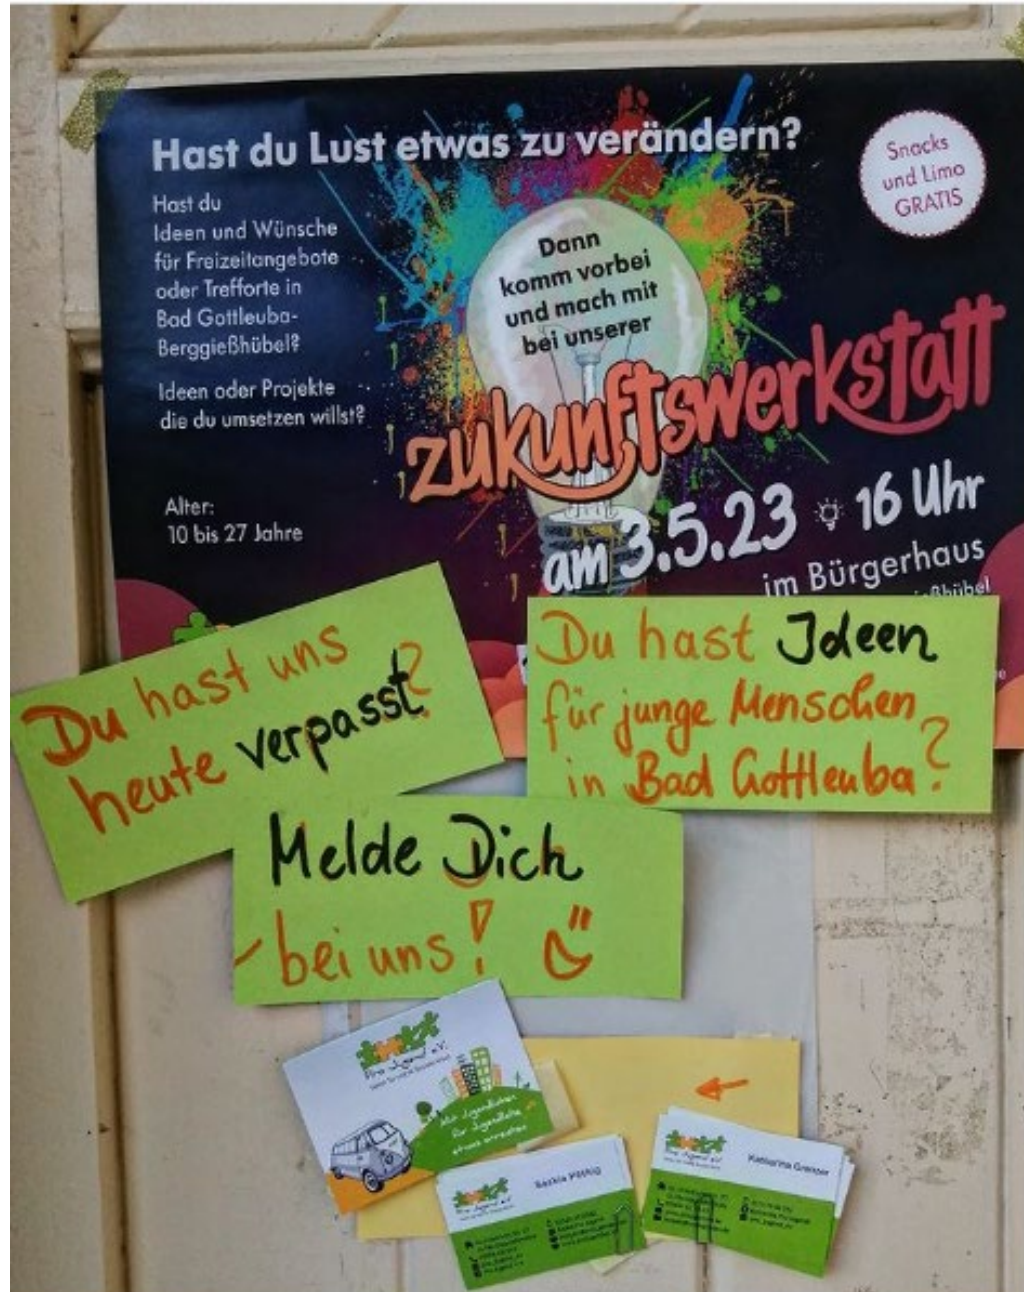 Hast du Lust etwas zu verändern?
Snacks
und Limo
GRATIS
Hast du
Ideen und Wünsche
für Freizeitangebote
oder Trefforte in
Bad Gottleuba-
Berggießhübel?
Ideen oder Projekte
die du umsetzen willst?
Alter:
10 bis 27 Jahre
Dann
komm vorbei
und mach mit
bei unserer
zukunftswerkstatt
am 3.5.23 16 Uhr
im Bürgerhaus
Du hast uns
heute verpasst?
Du hast Ideen
für junge Menschen
in Bad Gottleuba?
Melde Dich
bei uns!
Pro Jugend e.V.
Mit Jugendlichen
für Jugendliche
etwas erreichen
Pro Jugend e.V.
Saskia
Pro Jugend e.V.
Katharina